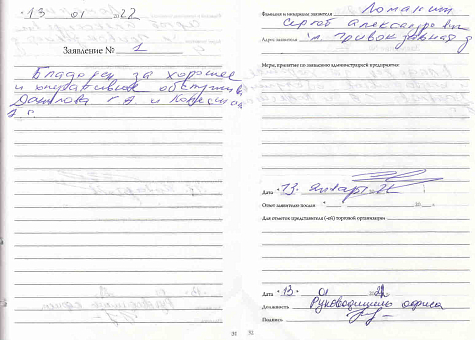 "13" 01 2022
Заявление № 1
Благодарю за хорошее
и оперативное обслужив
Данилова Г.А и
Фамилия и инициалы заявителя Ломакин
Сергей Александрович
Адрес заявителя ул.
Меры, принятые по заявлению администрацией предприятия:
Дата "13" Января 22
Ответ заявителю послан "___" 20
Для отметок представителя (-ей) торговой организации
Дата "13" 01 2022
Должность Руководитель офиса
Подпись
31 32